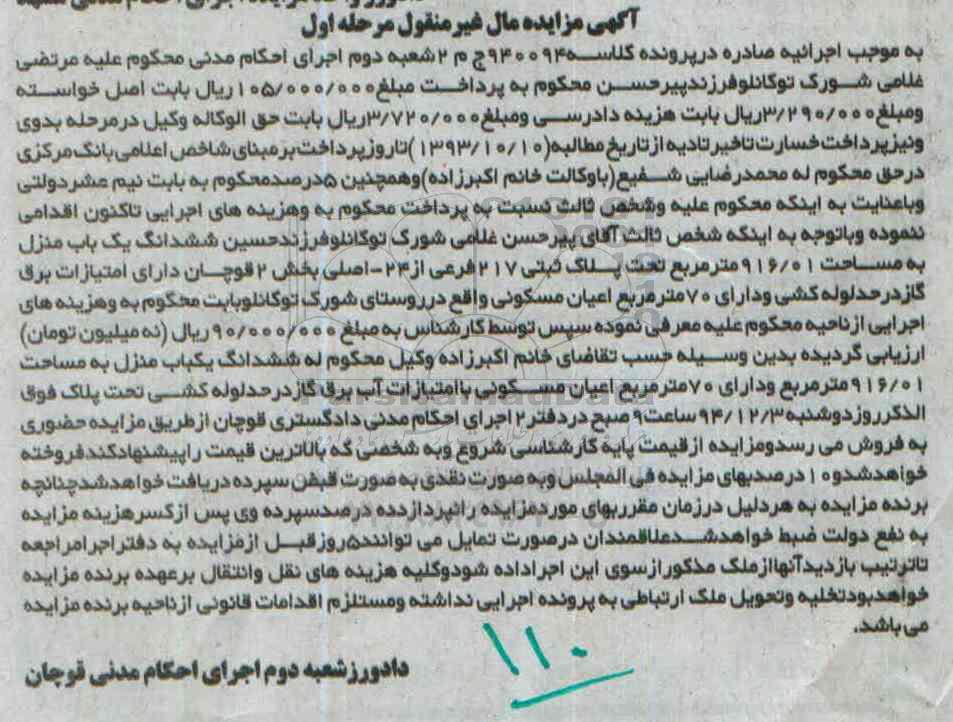 آگهی مزایده مال غیرمنقول مرحله اول
به موجب اجرائیه صادره درپرونده کلاسه۹۴۰۰۹۴ج م ۲شعبه دوم اجرای احکام مدنی محکوم علیه مرتضی
غلامی شورک توکانلوفرزندپیرحسن محکوم به پرداخت مبلغ۱۰۵/۰۰۰/۰۰۰ریال بابت اصل خواسته
ومبلغ۳/۲۹۰/۰۰۰ریال بابت هزینه دادرسی ومبلغ۳/۷۲۰/۰۰۰ریال بابت حق الوکاله وکیل درمرحله بدوی
ونیزپرداخت خسارت تاخیرتادیه ازتاریخ مطالبه(۱۳۹۳/۱۰/۱۰)تاروزپرداخت برمبنای شاخص اعلامی بانک مرکزی
درحق محکوم له محمدرضایی شفیع(باوکالت خانم اکبرزاده)وهمچنین ۵درصدمحکوم به بابت نیم عشردولتی
وباعنایت به اینکه محکوم علیه وشخص ثالث نسبت به پرداخت محکوم به وهزینه های اجرایی تاکنون اقدامی
ننموده وباتوجه به اینکه شخص ثالث آقای پیرحسن غلامی شورک توکانلوفرزندحسین ششدانگ یک باب منزل
به مساحت ۹۱۶/۰۱مترمربع تحت پلاک ثبتی ۲۱۷فرعی از۲۴-اصلی بخش ۲قوچان دارای امتیازات برق
گازدرحدلوله کشی ودارای ۷۰مترمربع اعیان مسکونی واقع درروستای شورک توکانلوبابت محکوم به وهزینه های
اجرایی ازناحیه محکوم علیه معرفی نموده سپس توسط کارشناس به مبلغ ۹۰/۰۰۰/۰۰۰ریال (نه میلیون تومان)
ارزیابی گردیده بدین وسیله حسب تقاضای خانم اکبرزاده وکیل محکوم له ششدانگ یکباب منزل به مساحت
۹۱۶/۰۱مترمربع ودارای ۷۰مترمربع اعیان مسکونی باامتیازات آب برق گازدرحدلوله کشی تحت پلاک فوق
الذکرروزدوشنبه۹۴/۱۲/۳ساعت۹صبح دردفتر۲اجرای احکام مدنی دادگستری قوچان ازطریق مزایده حضوری
به فروش می رسدومزایده ازقیمت پایه کارشناسی شروع وبه شخصی که بالاترین قیمت راپیشنهادکندفروخته
خواهدشدو۱۰درصدبهای مزایده فی المجلس وبه صورت نقدی به صورت قبض سپرده دریافت خواهدشدچنانچه
برنده مزایده به هردلیل درزمان مقرربهای موردمزایده رانپردازدده درصدسپرده وی پس ازکسرهزینه مزایده
به نفع دولت ضبط خواهدشدعلاقمندان درصورت تمایل می توانند۵روزقبل ازمزایده به دفتراجرامراجعه
تاترتیب بازدیدآنهاازملک مذکورازسوی این اجراداده شودوکلیه هزینه های نقل وانتقال برعهده برنده مزایده
خواهدبودتخلیه وتحویل ملک ارتباطی به پرونده اجرایی نداشته ومستلزم اقدامات قانونی ازناحیه برنده مزایده
می باشد.
۱۱۰
دادورزشعبه دوم اجرای احکام مدنی قوچان